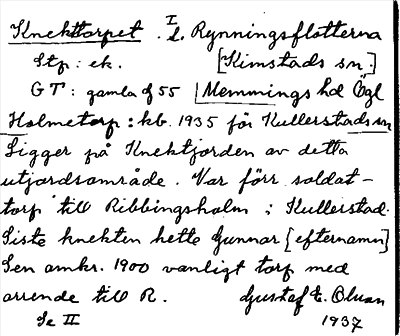 Knekttorpet. I l. Rynningsflotterna
Stp: ek. [Kimstads sn.]
GT: gamla 55 Memmings hd Ögl
Holmetorp: kb. 1935 för Kullerstads sn
Ligger på Knektjorden av detta
utjordsområde. Var förr soldat-
torp till Ribbingsholm i Kullerstad.
Siste knekten hette Gunnar [efternamn]
Sen omkr. 1900 vanligt torp med
arrende till R. Gustaf E. Olsson
Se II 1937